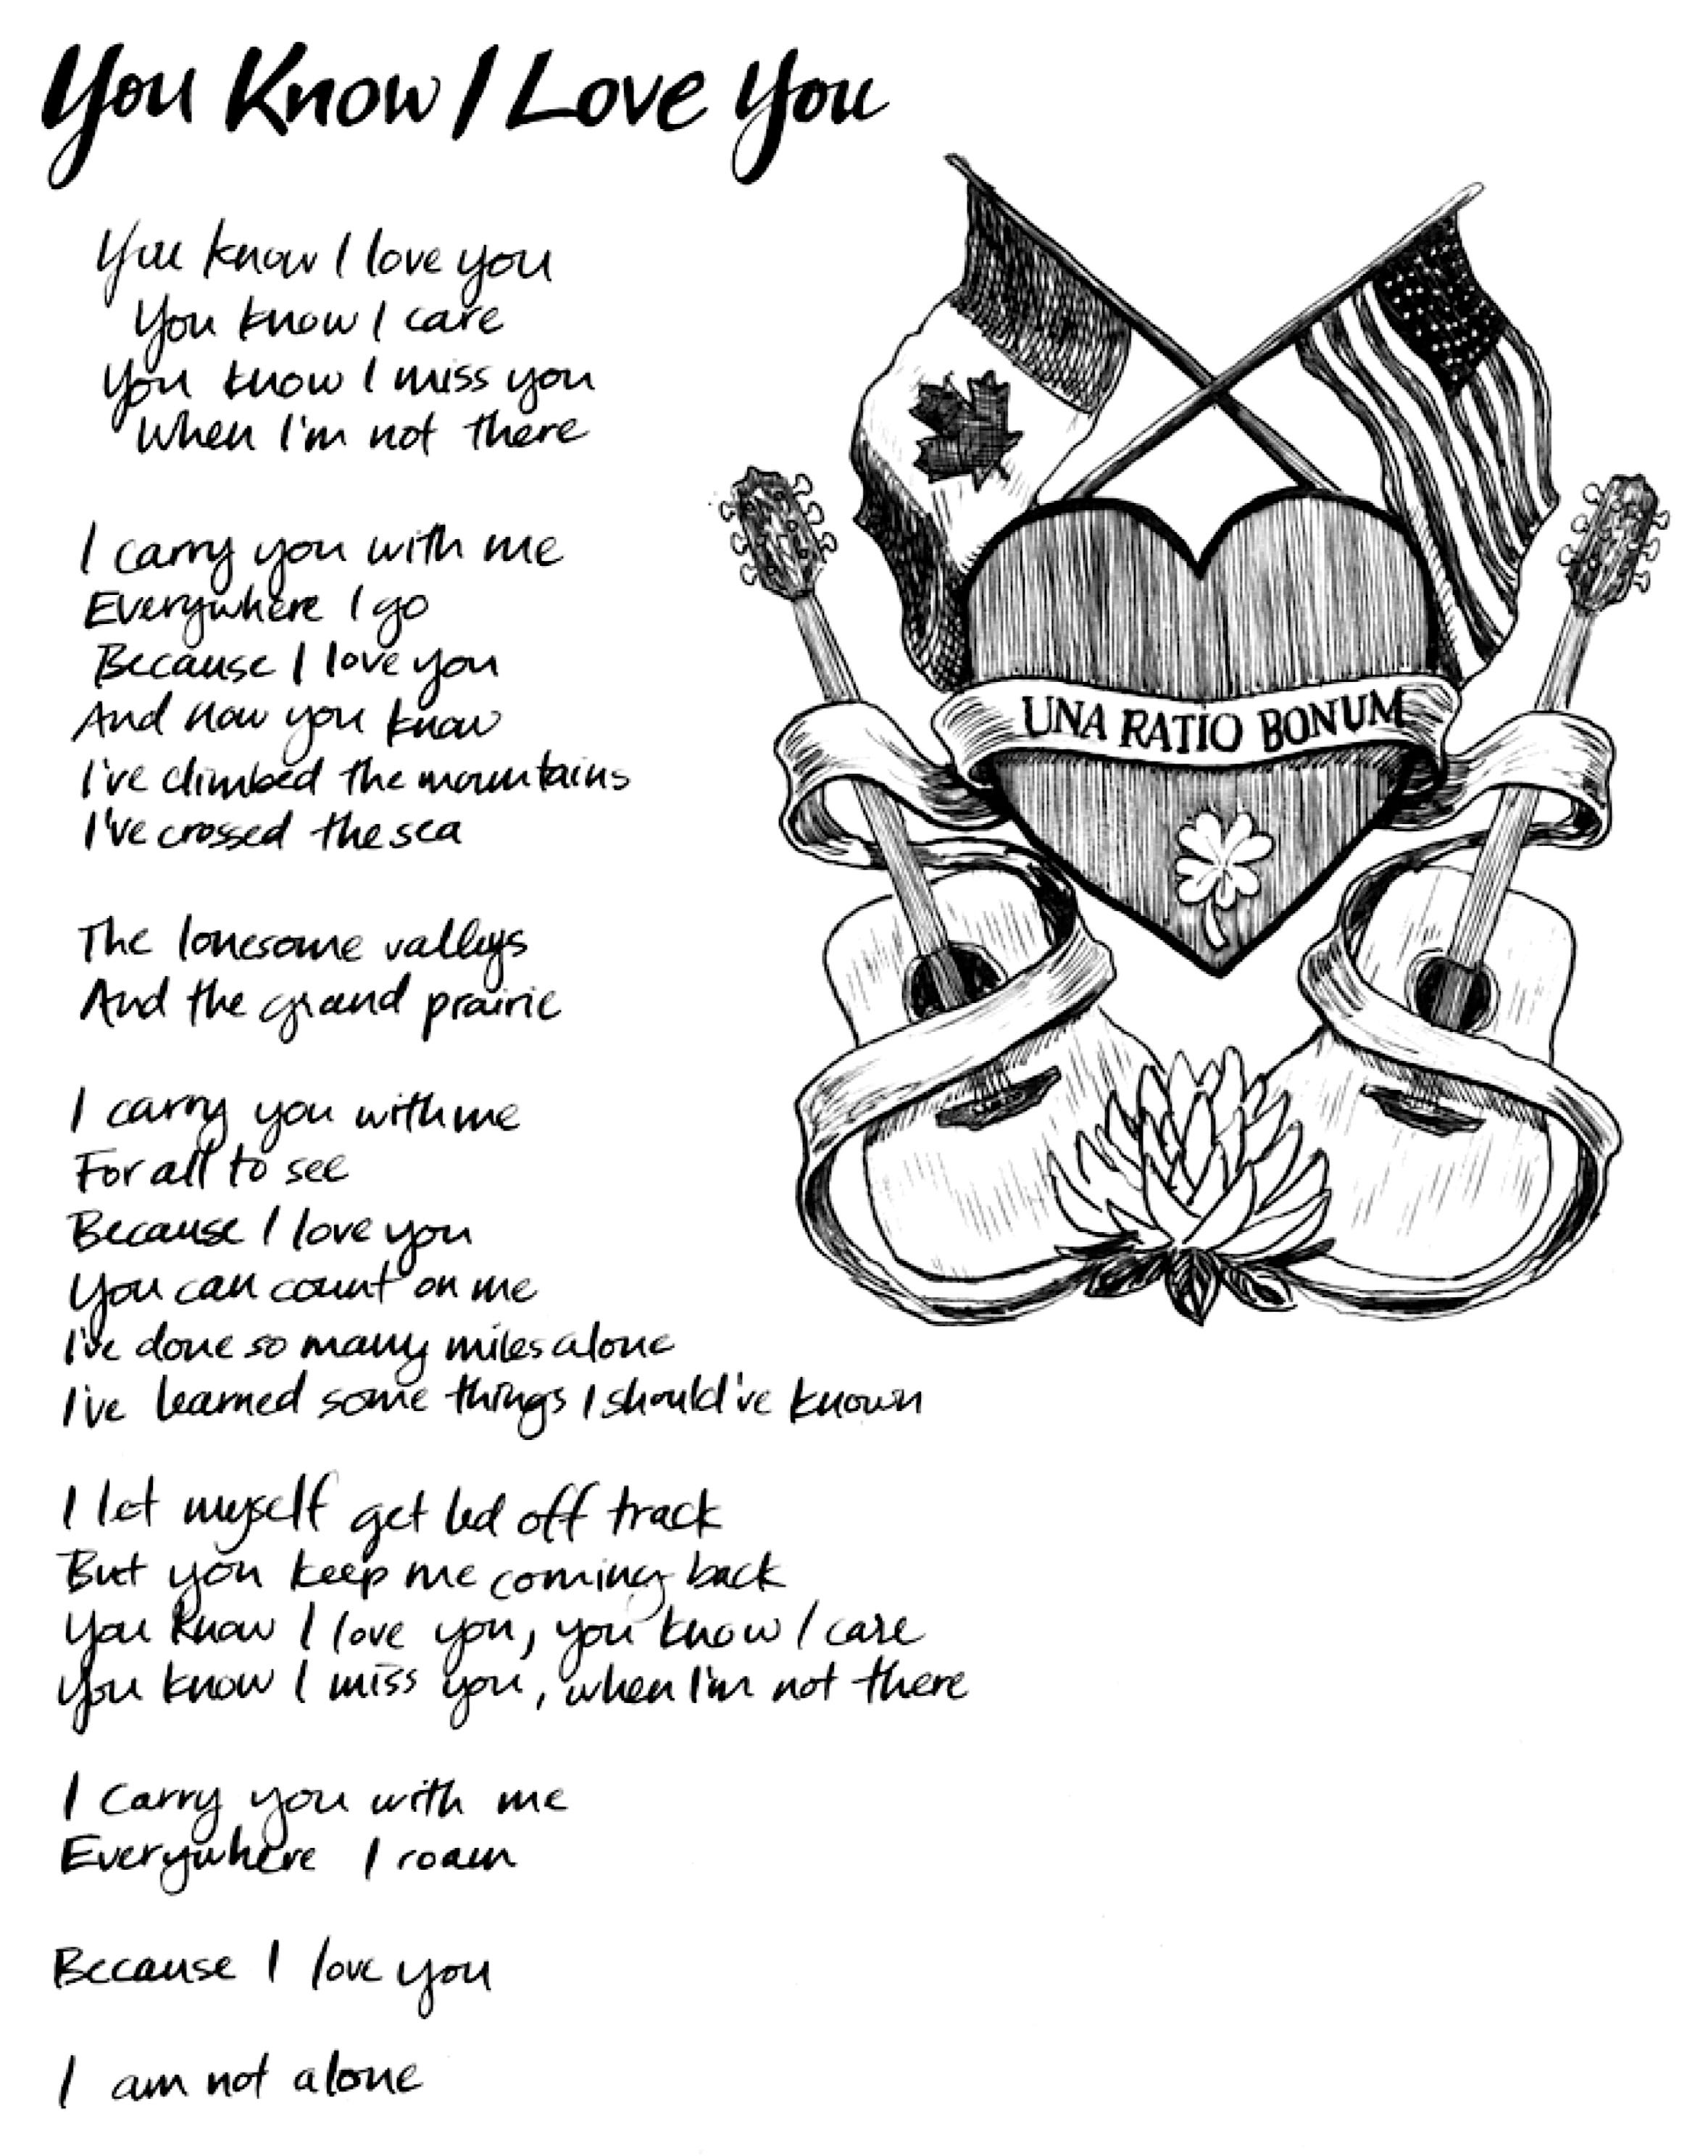 You Know I Love You
You know I love you
You know I care
You know I miss you
When I'm not there
I carry you with me
Everywhere I go
Because I love you
And now you know
I've climbed the mountains
I've crossed the sea
The lonesome valleys
And the grand prairie
I carry you with me
For all to see
Because I love you
You can count on me
I've done so many miles alone
I've learned some things I should've known
I let myself get led off track
But you keep me coming back
You know I love you, you know I care
You know I miss you, when I'm not there
I carry you with me
Everywhere I roam
Because I love you
I am not alone
UNA RATIO BONUM